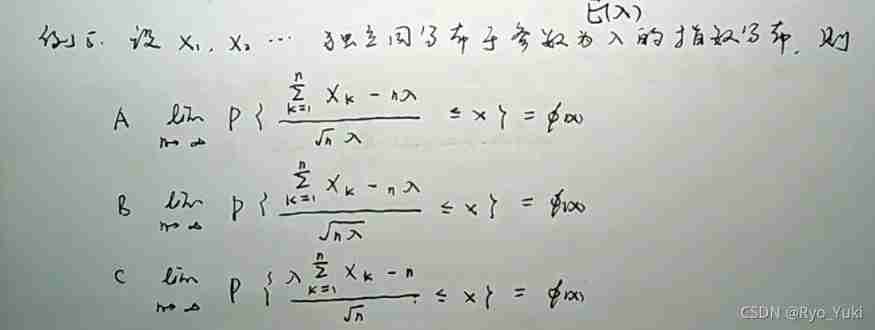 例5. 设 X₁, X₂ … 独立同分布于参数为 λ 的指数分布, 则
E(λ)
A lim_{n→∞} P { (∑_{k=1}^{n} X_k - nλ) / (√n λ) ≤ x } = φ(x)
B lim_{n→∞} P { (∑_{k=1}^{n} X_k - nλ) / √(nλ) ≤ x } = φ(x)
C lim_{n→∞} P { (λ ∑_{k=1}^{n} X_k - n) / √n ≤ x } = φ(x)
CSDN @Ryo_Yuki